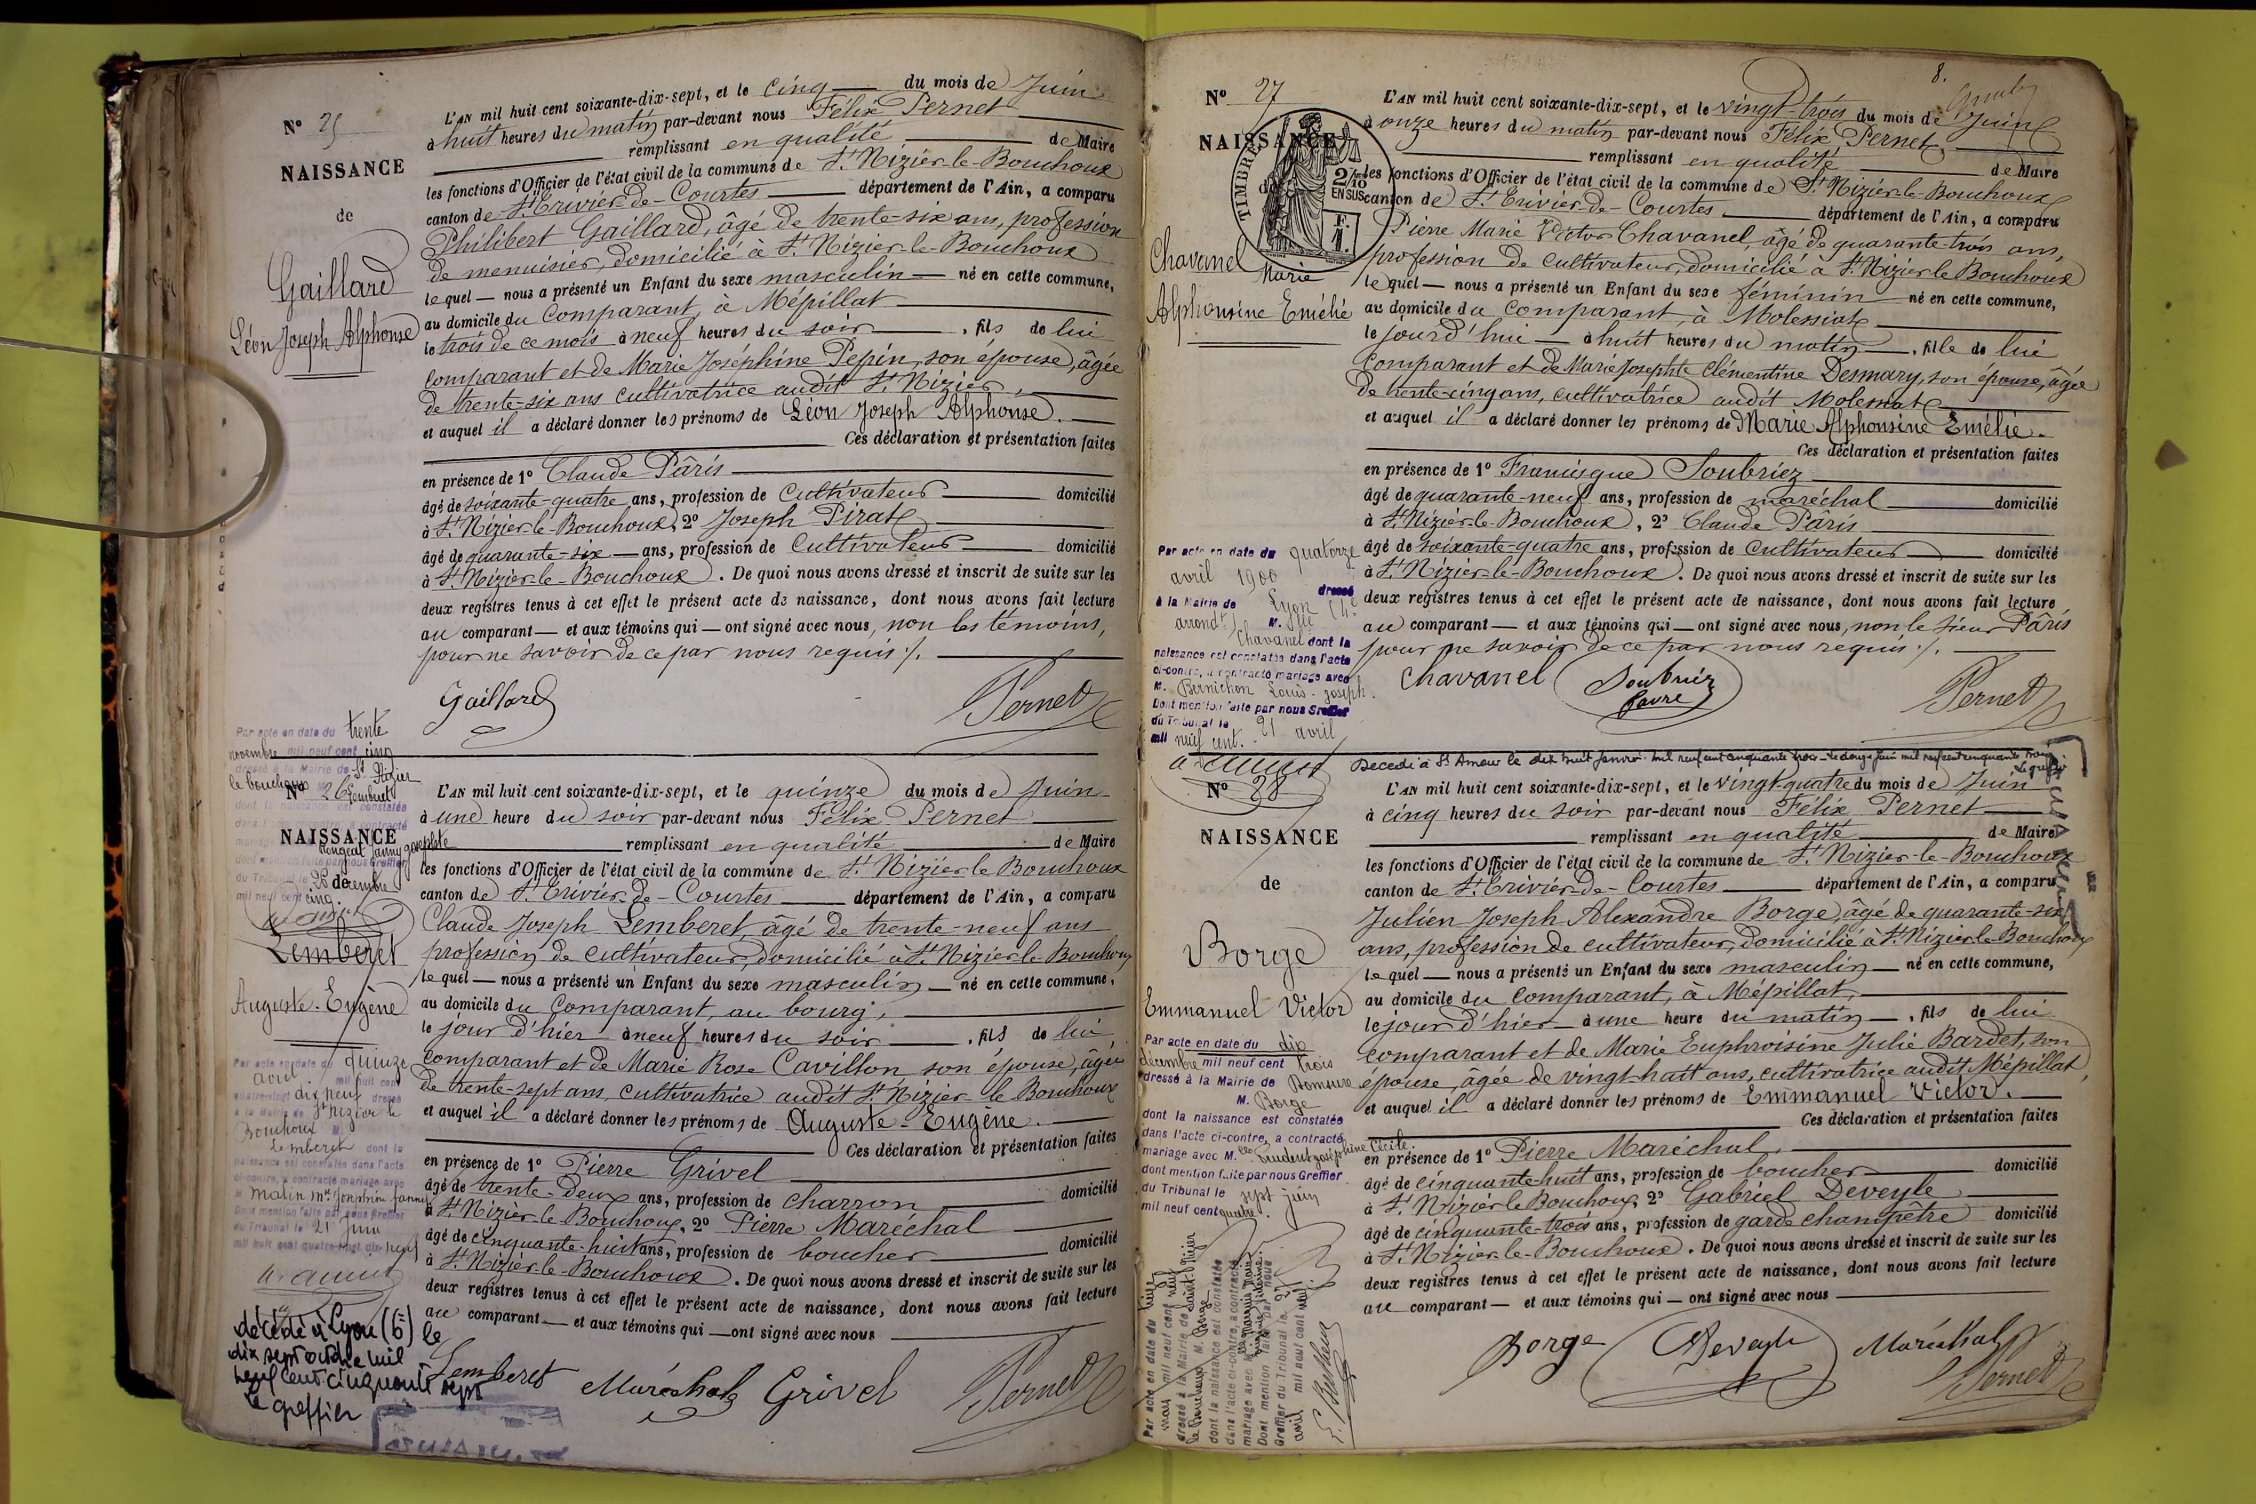 N° 25
NAISSANCE
de
Gaillard
Léon Joseph Alphonse
L'AN mil huit cent soixante-dix-sept, et le cinq du mois de Juin
à huit heures du matin par-devant nous Félix Pernet
remplissant en qualité de Maire
les fonctions d'Officier de l'état civil de la commune de St Nizier-le-Bouchoux
canton de St Trivier-de-Courtes département de l'Ain, a comparu
Philibert Gaillard, âgé de trente-six ans, profession
de menuisier, domicilié à St Nizier-le-Bouchoux
lequel nous a présenté un Enfant du sexe masculin né en cette commune,
au domicile du Comparant, à Mépillat
le trois de ce mois à neuf heures du soir, fils de lui
comparant et de Marie Joséphine Pepin, son épouse, âgée
de trente-six ans cultivatrice audit St Nizier,
et auquel il a déclaré donner les prénoms de Léon Joseph Alphonse.
Ces déclaration et présentation faites
en présence de 1° Claude Pâris
âgé de soixante-quatre ans, profession de Cultivateur domicilié
à St Nizier-le-Bouchoux, 2° Joseph Pirat
âgé de quarante-six ans, profession de Cultivateur domicilié
à St Nizier-le-Bouchoux. De quoi nous avons dressé et inscrit de suite sur les
deux registres tenus à cet effet le présent acte de naissance, dont nous avons fait lecture
au comparant et aux témoins qui ont signé avec nous, non les témoins,
pour ne savoir de ce par nous requis ./.
Gaillard Pernet
Par acte en date du trente
novembre mil neuf cent cinq
dressé à la Mairie de St Nizier
le bouchoux M. Lemberet
dont la naissance est constatée
26 décembre
mil neuf cent cinq.
N° 26
NAISSANCE
Lemberet
Auguste-Eugène
Par acte en date du quinze
avril mil huit cent
quatre-vingt dix neuf dressé
à la Mairie de St Nizier le
Bouchoux M.
Lemberet dont la
naissance est constatée dans l'acte
ci-contre, a contracté mariage avec
Dont mention faite par nous Greffier
du Tribunal le 21 Juin
mil huit cent quatre-vingt dix neuf
décédé à Lyon (6e) le
dix sept octobre mil
neuf cent cinquante sept
Le greffier
L'AN mil huit cent soixante-dix-sept, et le quinze du mois de Juin
à une heure du soir par-devant nous Félix Pernet
remplissant en qualité de Maire
les fonctions d'Officier de l'état civil de la commune de St Nizier-le-Bouchoux
canton de St Trivier-de-Courtes département de l'Ain, a comparu
Claude Joseph Lemberet, âgé de trente-neuf ans
profession de cultivateur, domicilié à St Nizier-le-Bouchoux
lequel nous a présenté un Enfant du sexe masculin né en cette commune,
au domicile du Comparant, au bourg,
le jour d'hier à neuf heures du soir, fils de lui
comparant et de Marie Rose Cavillon son épouse, âgée
de trente-sept ans, cultivatrice audit St Nizier-le-Bouchoux
et auquel il a déclaré donner les prénoms de Auguste-Eugène.
Ces déclaration et présentation faites
en présence de 1° Pierre Grivel
âgé de trente-deux ans, profession de charron domicilié
à St Nizier-le-Bouchoux, 2° Pierre Maréchal
âgé de cinquante-huit ans, profession de boucher domicilié
à St Nizier-le-Bouchoux. De quoi nous avons dressé et inscrit de suite sur les
deux registres tenus à cet effet le présent acte de naissance, dont nous avons fait lecture
au comparant et aux témoins qui ont signé avec nous
Lemberet Maréchal Grivel Pernet
8.
N° 27
NAISSANCE
TIMBRE
2/10
EN SUS
F.
1.
Chavanel
Marie
Alphonsine Emélie
Par acte en date du quatorze
avril 1900 dressé
à la Mairie de Lyon (4e
arrondt) M. elle
Chavanel dont la
naissance est constatée dans l'acte
ci-contre, a contracté mariage avec
M. Bernichon Louis-Joseph.
Dont mention faite par nous Greffier
du Tribunal le 21 avril
mil neuf cent.
L'AN mil huit cent soixante-dix-sept, et le vingt-trois du mois de Juin
à onze heures du matin par-devant nous Félix Pernet,
remplissant en qualité de Maire
les fonctions d'Officier de l'état civil de la commune de St Nizier-le-Bouchoux
canton de St Trivier-de-Courtes département de l'Ain, a comparu
Pierre Marie Victor Chavanel, âgé de quarante-trois ans,
profession de cultivateur, domicilié à St Nizier-le-Bouchoux
lequel nous a présenté un Enfant du sexe féminin né en cette commune,
au domicile du comparant, à Molessiat
le jourd'hui à huit heures du matin, fille de lui
comparant et de Marie Josephte Clémentine Desmary, son épouse, âgée
de trente-cinq ans, cultivatrice audit Molessiat
et auquel il a déclaré donner les prénoms de Marie Alphonsine Emélie.
Ces déclaration et présentation faites
en présence de 1° Francisque Soubriez
âgé de quarante-neuf ans, profession de maréchal domicilié
à St Nizier-le-Bouchoux, 2° Claude Pâris
âgé de soixante-quatre ans, profession de cultivateur domicilié
à St Nizier-le-Bouchoux. De quoi nous avons dressé et inscrit de suite sur les
deux registres tenus à cet effet le présent acte de naissance, dont nous avons fait lecture
au comparant et aux témoins qui ont signé avec nous, non le sieur Pâris
pour ne savoir de ce par nous requis ./.
Chavanel Soubriez Favre Pernet
Décédé à St Amour le dix huit janvier mil neuf cent cinquante trois. Le douze juin mil neuf cent cinquante trois
Le greffier
N° 28
NAISSANCE
de
Borge
Emmanuel Victor
Par acte en date du dix
décembre mil neuf cent trois
dressé à la Mairie de Domsure
M. Borge
dont la naissance est constatée
dans l'acte ci-contre, a contracté
mariage avec M.elle Joséphine Cécile.
dont mention faite par nous Greffier
du Tribunal le sept juin
mil neuf cent quatre.
Par acte en date du
mars mil neuf cent neuf
dressé à la Mairie de Saint-Nizier
le Bouchoux M. Borge
dont la naissance est constatée
dans l'acte ci-contre, a contracté
mariage avec M.
Dont mention faite par nous
Greffier du Tribunal le
avril mil neuf cent neuf.
L'AN mil huit cent soixante-dix-sept, et le vingt-quatre du mois de Juin
à cinq heures du soir par-devant nous Félix Pernet
remplissant en qualité de Maire
les fonctions d'Officier de l'état civil de la commune de St Nizier-le-Bouchoux
canton de St Trivier-de-Courtes département de l'Ain, a comparu
Julien Joseph Alexandre Borge, âgé de quarante-six
ans, profession de cultivateur, domicilié à St Nizier-le-Bouchoux
lequel nous a présenté un Enfant du sexe masculin né en cette commune,
au domicile du comparant, à Mépillat,
le jour d'hier à une heure du matin, fils de lui
comparant et de Marie Euphroisine Julie Bardet, son
épouse, âgée de vingt-huit ans, cultivatrice audit Mépillat,
et auquel il a déclaré donner les prénoms de Emmanuel Victor.
Ces déclaration et présentation faites
en présence de 1° Pierre Maréchal,
âgé de cinquante-huit ans, profession de boucher domicilié
à St Nizier-le-Bouchoux, 2° Gabriel Deveyle
âgé de cinquante-trois ans, profession de garde champêtre domicilié
à St Nizier-le-Bouchoux. De quoi nous avons dressé et inscrit de suite sur les
deux registres tenus à cet effet le présent acte de naissance, dont nous avons fait lecture
au comparant et aux témoins qui ont signé avec nous
Borge Deveyle Maréchal Pernet